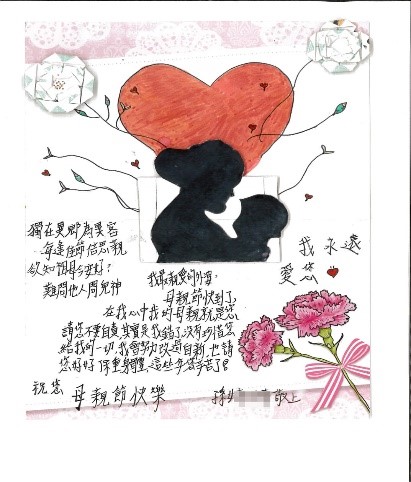 獨在異鄉為異客
每逢佳節倍思親
欲知祖母安好?
難問他人問兒神
我最親愛的外婆,
母親節快到了,
在我心中我的母親就是您
請您不要自責其實是我錯了沒有珍惜您
給我的一切,我會努力改過自新,也請
您好好保重身體,這些年您辛苦了!
祝您 母親節快樂
孫 敬上
我永遠
愛您